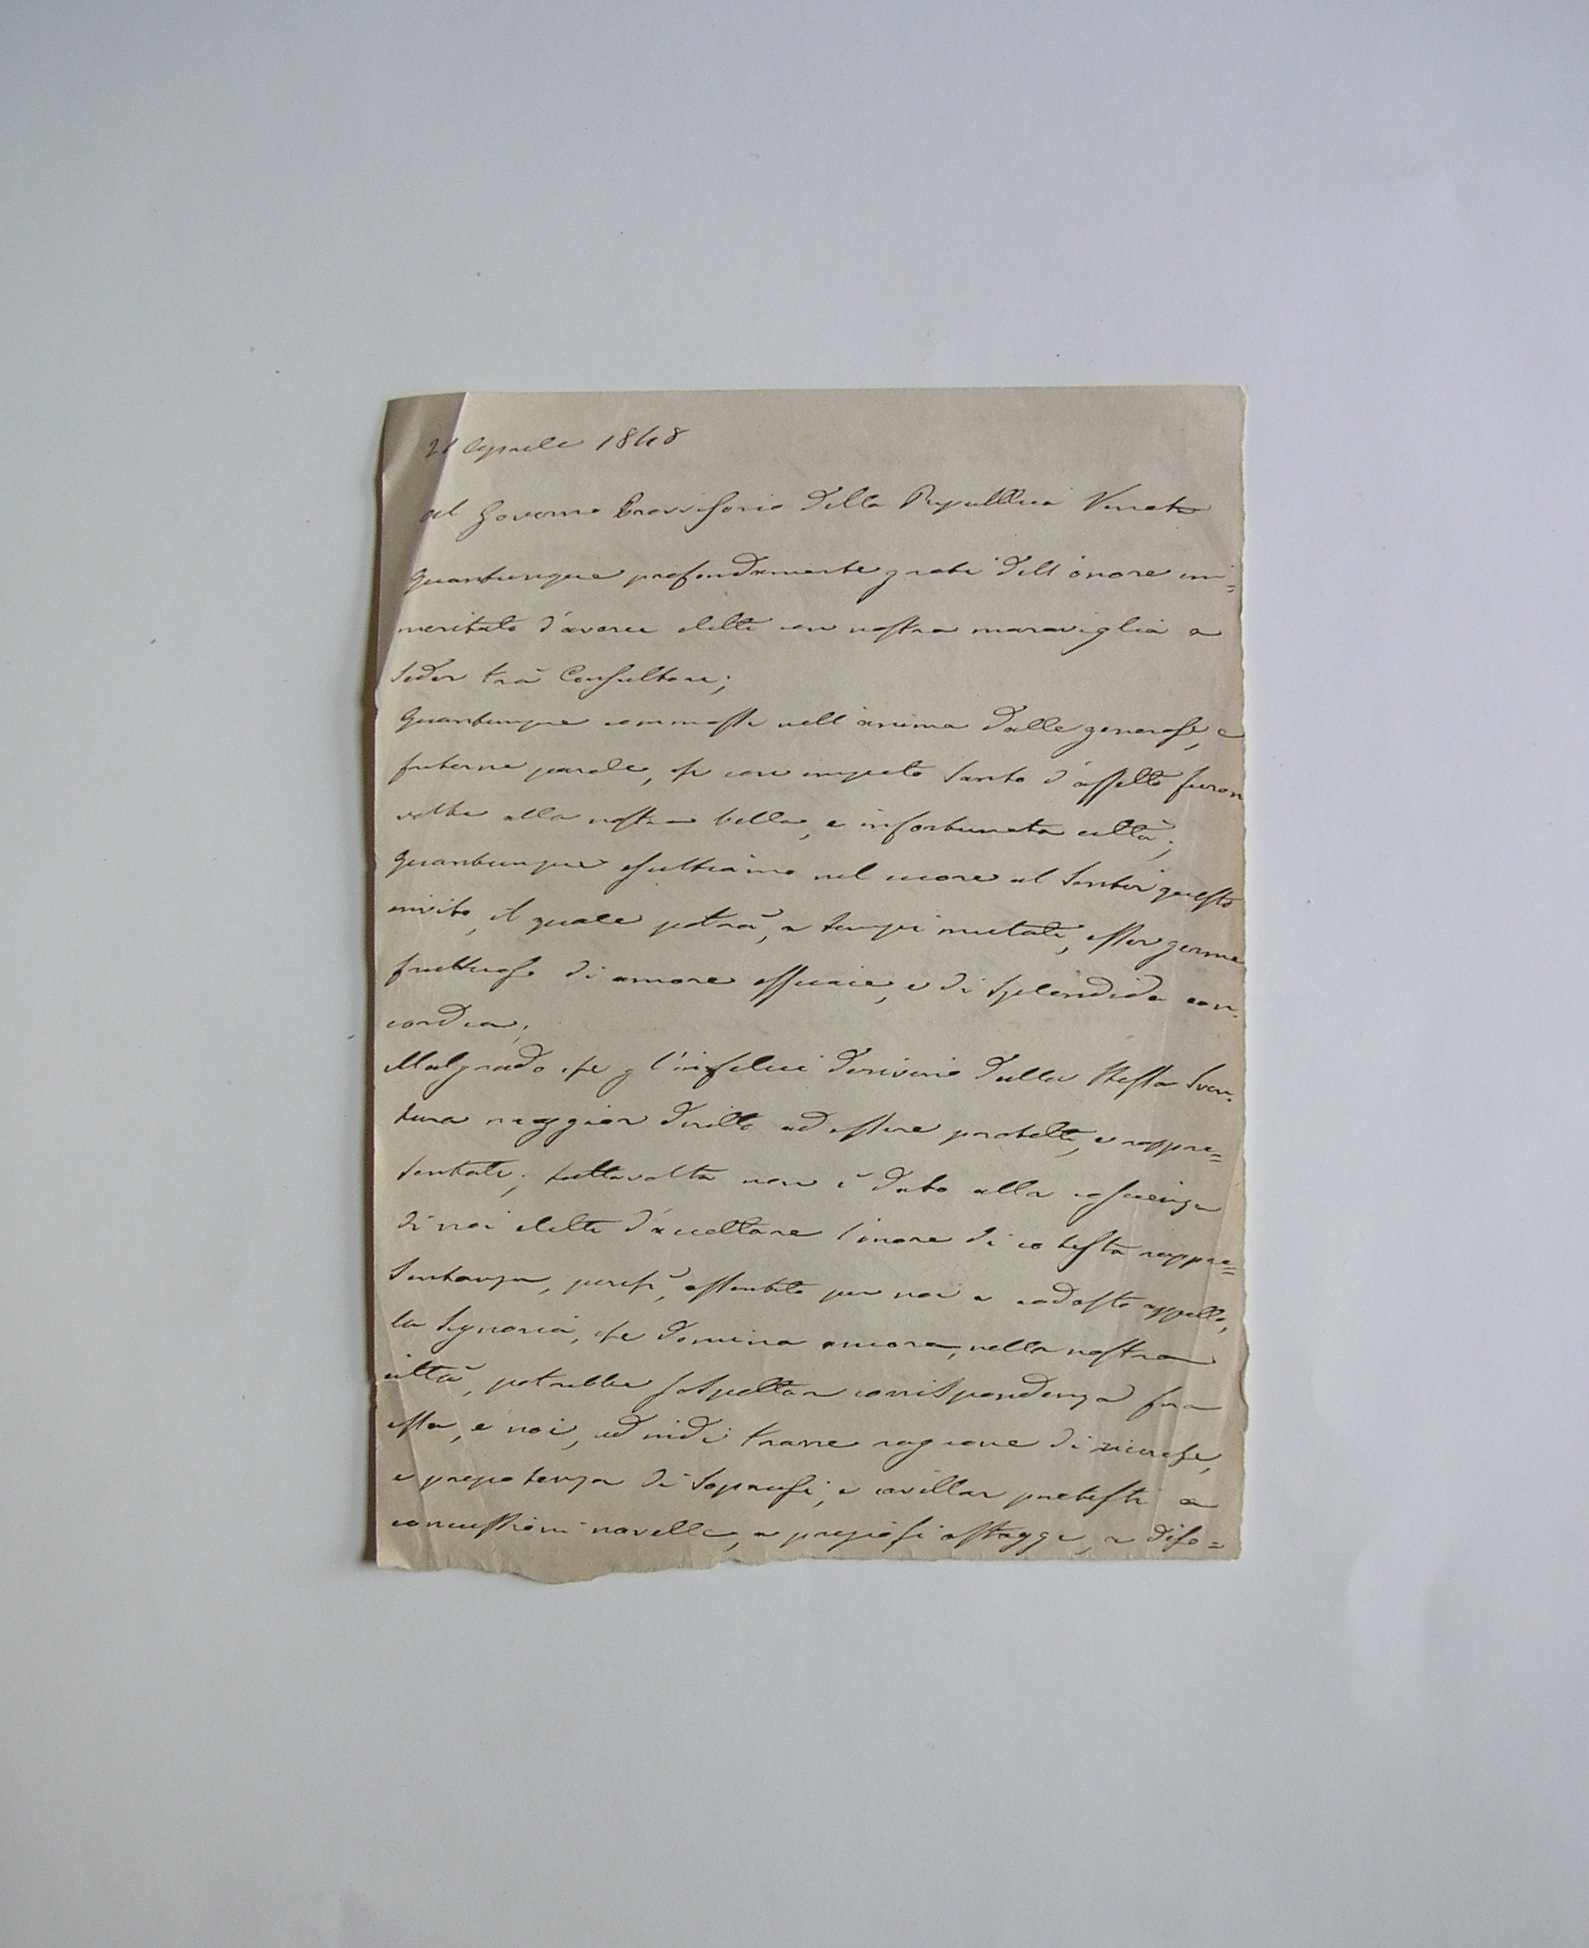 21 Aprile 1848
Al Governo Provvisorio della Repubblica Veneta
Quantunque profondamente grati dell'onore im=
meritato d'averci eletti con nostra maraviglia a
seder tra' Consultori;
Quantunque commossi nell'anima dalle generose, e
fraterne parole, che con impeto santo d'affetto furon
volte alla nostra bella, e infortunata città;
Quantunque esultiamo nel cuore al sentir questo
invito, il quale potrà, a tempi mutati, esser germe
fruttuoso di amore efficace, e di splendida con-
cordia;
Malgrado che gl'infelici derivino dalla stessa sven-
tura maggior diritto ad essere protetti, e rappre=
sentati; tuttavolta non è dato alla coscienza
di noi eletti d'accettare l'onore di cotesta rappre=
sentanza, perchè, assentito per noi a codesto appello,
la Signoria, che domina ancora, nella nostra
città, potrebbe sospettar corrispondenza fra
essa, e noi, ed indi trarre ragione di ricerche,
e prepotenza di soprusi, e cavillar pretesti a
concussioni novelle, a preziosi ostaggi, a diso=